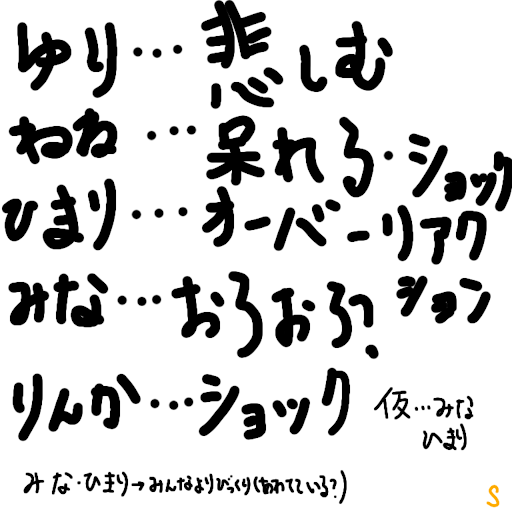 ゆり…悲しむ
ねね…呆れる・ショック
ひまり…オーバーリアクション
みな…おろおろ?
りんか…ショック
仮…みな
ひまり
みな・ひまり→みんなよりびっくり(あわてている?)
S